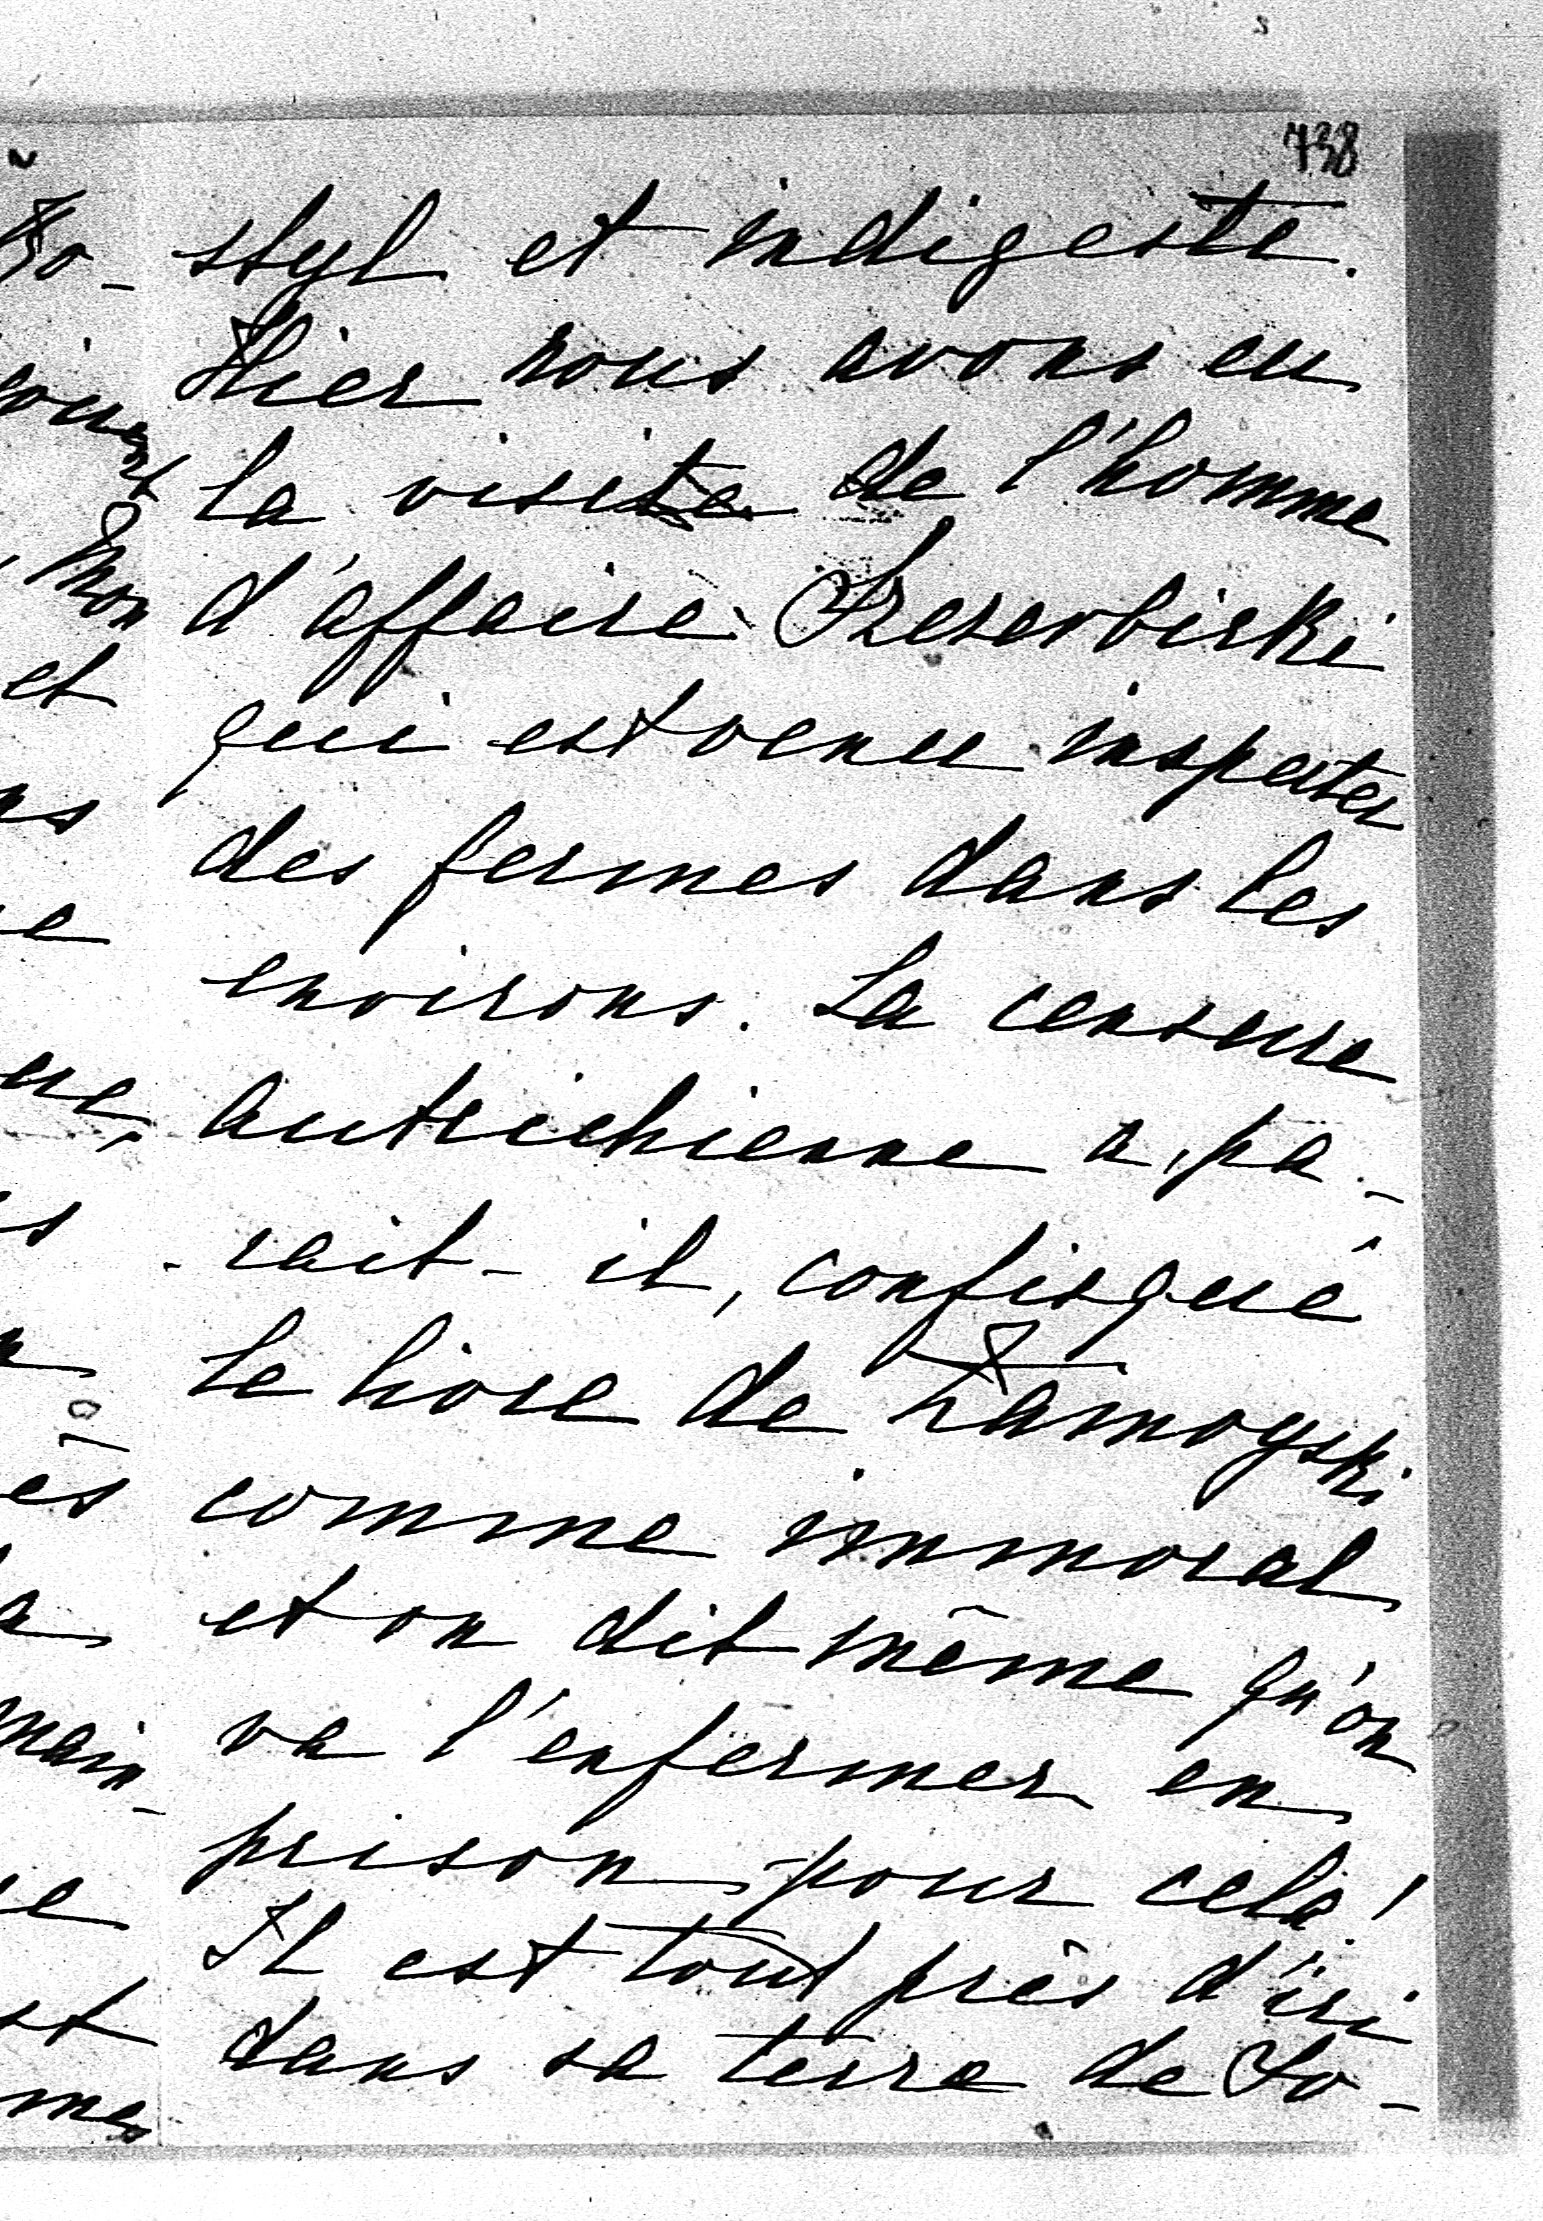 738
styl et indigeste.
Hier nous avons eu
la visite de l'homme
d'affaire
qui est venu inspecter
des fermes dans les
environs. La censure
autrichienne a, pa-
-rait-il, confisqué
le livre de Zamoyski
comme immoral
et on dit même qu'on
va l'enfermer en
prison pour cela!
Il est tout près d'ici
dans sa terre de Lo-